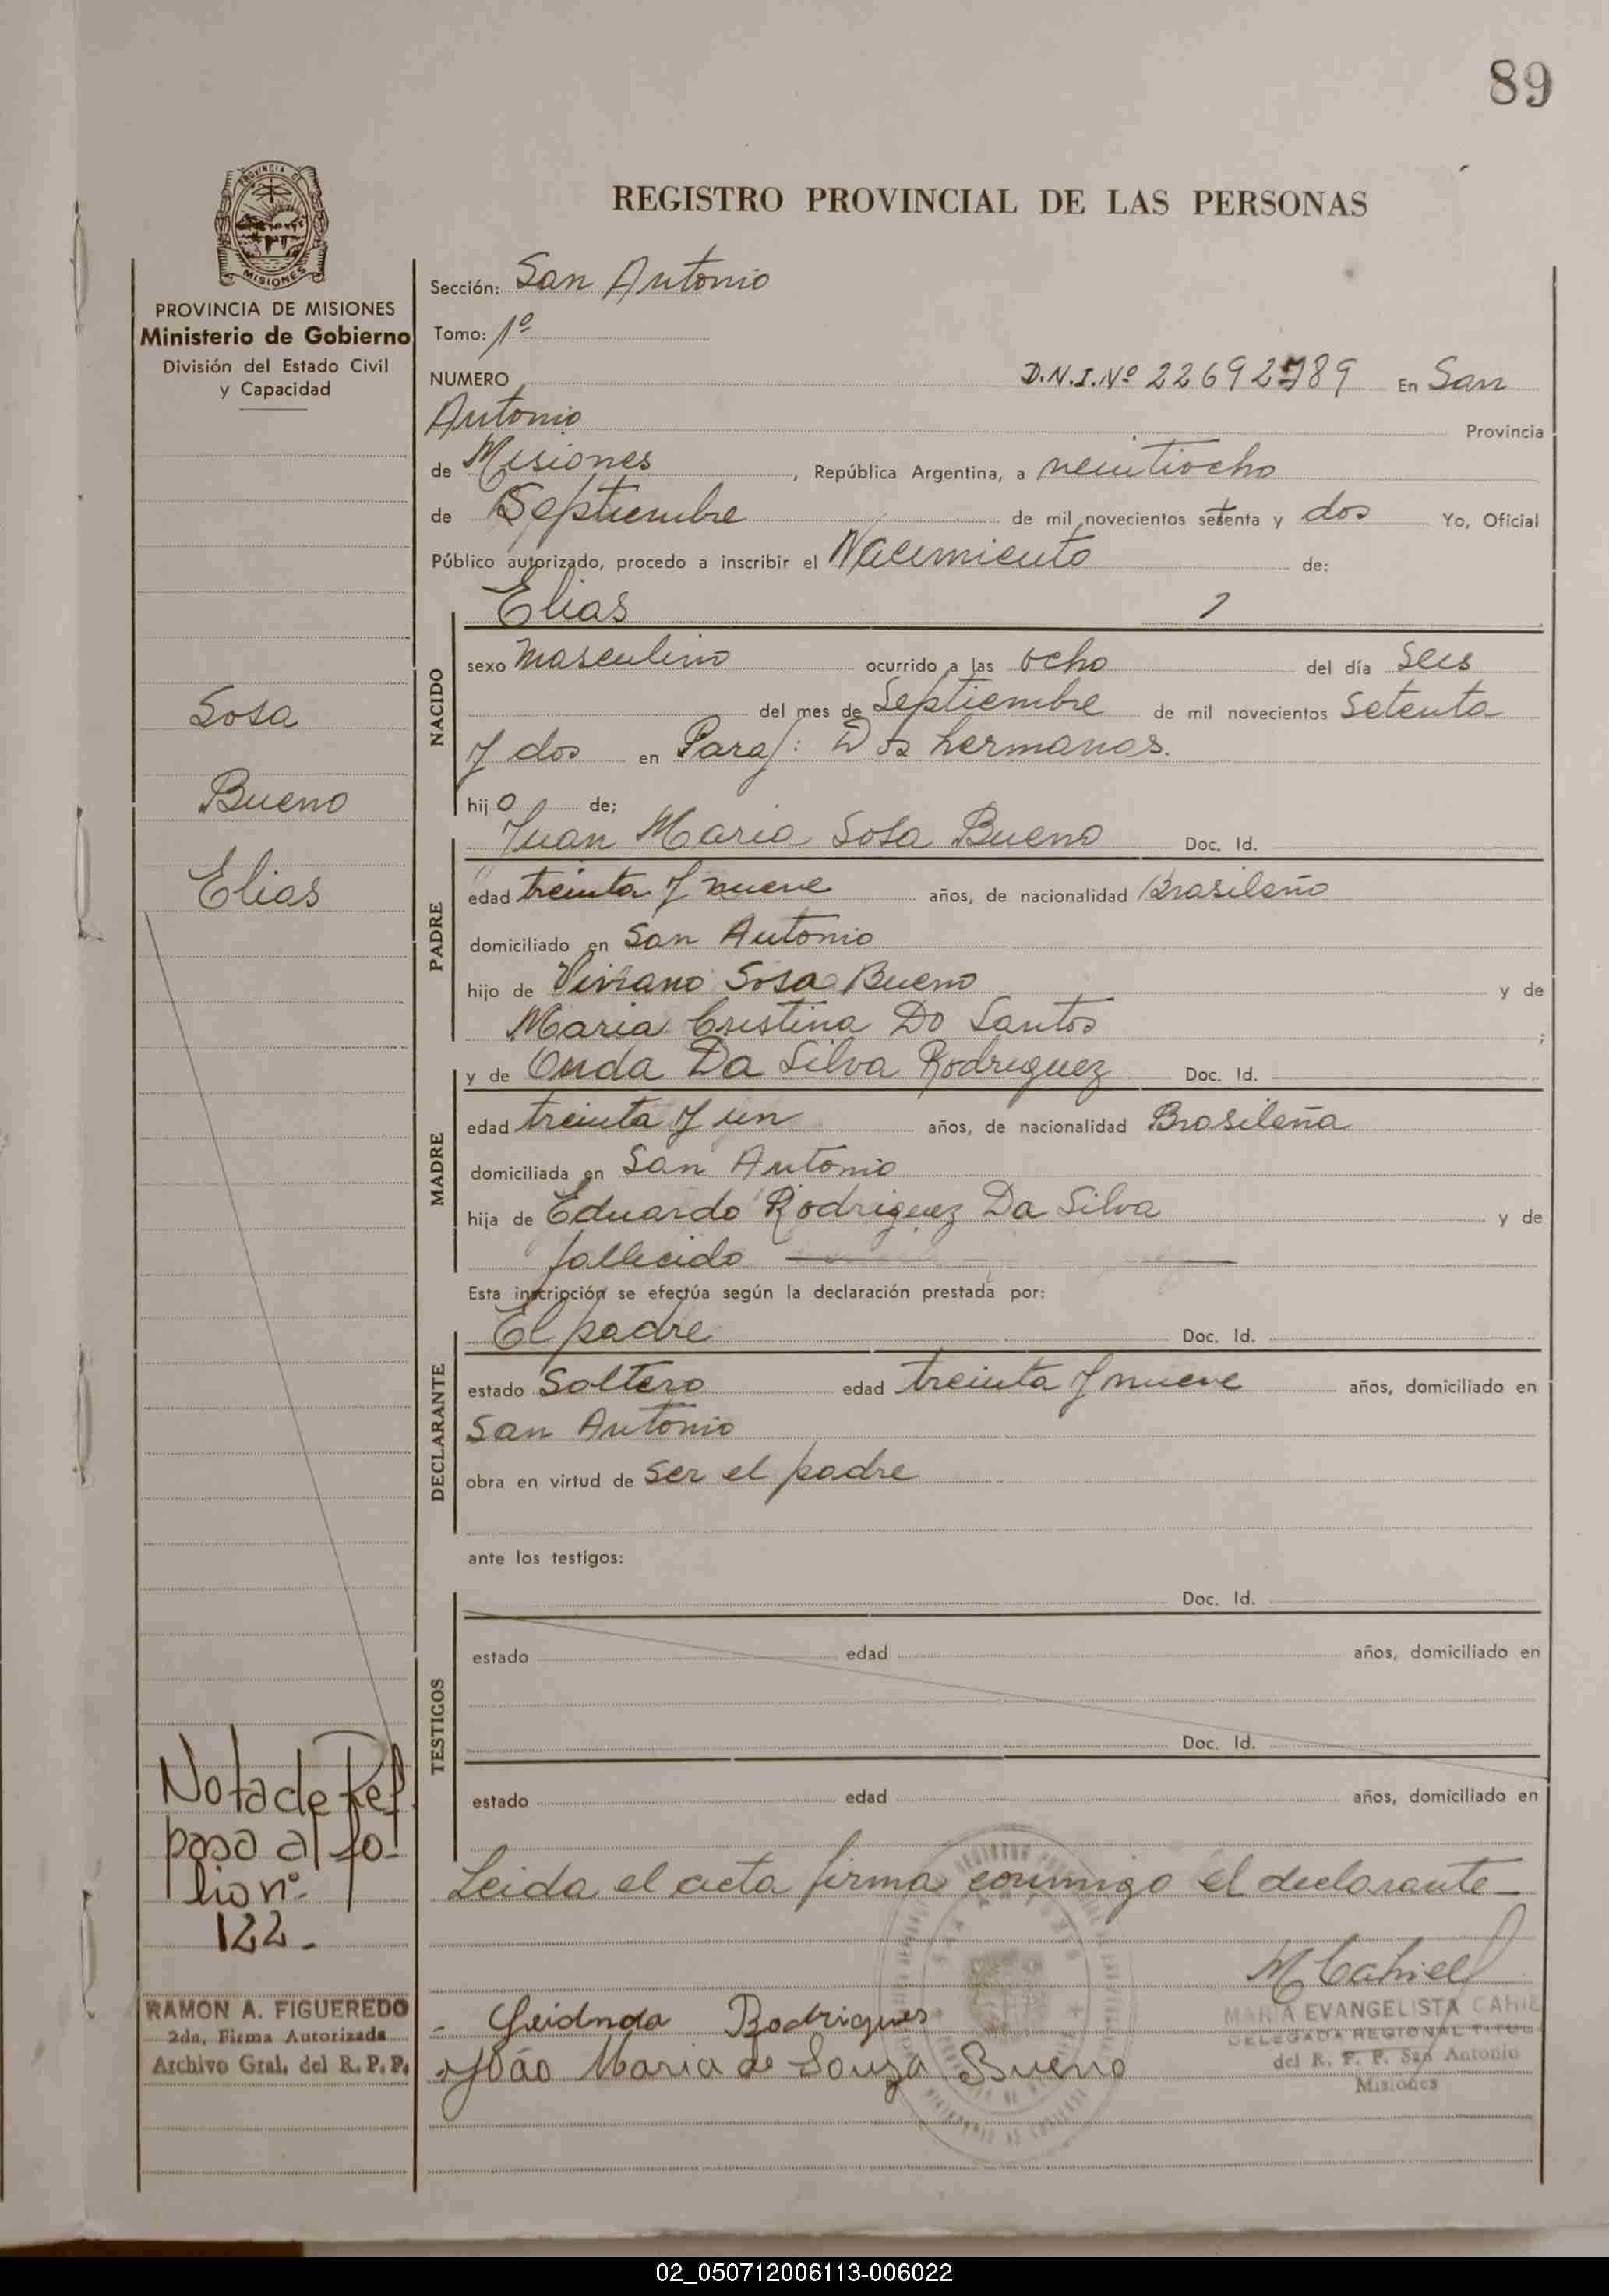 89
PROVINCIA DE
MISIONES
PROVINCIA DE MISIONES
Ministerio de Gobierno
División del Estado Civil
y Capacidad
Sosa
Bueno
Elias
Nota de Ref.
pasa al fo-
lio nº
122.-
RAMON A. FIGUEREDO
2da. Firma Autorizada
Archivo Gral. del R. P. P.
REGISTRO PROVINCIAL DE LAS PERSONAS
Sección: San Antonio
Tomo: 1º
NUMERO D.N.I. Nº 22692789 En San
Antonio Provincia
de Misiones, República Argentina, a veintiocho
de Septiembre de mil novecientos setenta y dos Yo, Oficial
Público autorizado, procedo a inscribir el Nacimiento de:
Elias
NACIDO
sexo masculino ocurrido a las ocho del día Seis
del mes de Septiembre de mil novecientos Setenta
y dos en Paraj: Dos hermanos.
hijo de;
Juan Maria Sosa Bueno Doc. Id.
PADRE
edad treinta y nueve años, de nacionalidad Brasileño
domiciliado en San Antonio
hijo de Viviano Sosa Bueno y de
Maria Cristina Do Santos ;
y de Onda Da Silva Rodriguez Doc. Id.
MADRE
edad treinta y un años, de nacionalidad Brasileña
domiciliada en San Antonio
hija de Eduardo Rodriguez Da Silva y de
fallecido
Esta inscripción se efectúa según la declaración prestada por:
El padre Doc. Id.
DECLARANTE
estado Soltero edad treinta y nueve años, domiciliado en
San Antonio
obra en virtud de ser el padre
ante los testigos:
Doc. Id.
TESTIGOS
estado edad años, domiciliado en
Doc. Id.
estado edad años, domiciliado en
Leida el acta firma conmigo el declarante
M Cahiel
MARIA EVANGELISTA CAHIE
DELEGADA REGIONAL TITUL
del R. P. P. San Antonio
Misiones
Rodrigues
João Maria de Souza Bueno
02_050712006113-006022